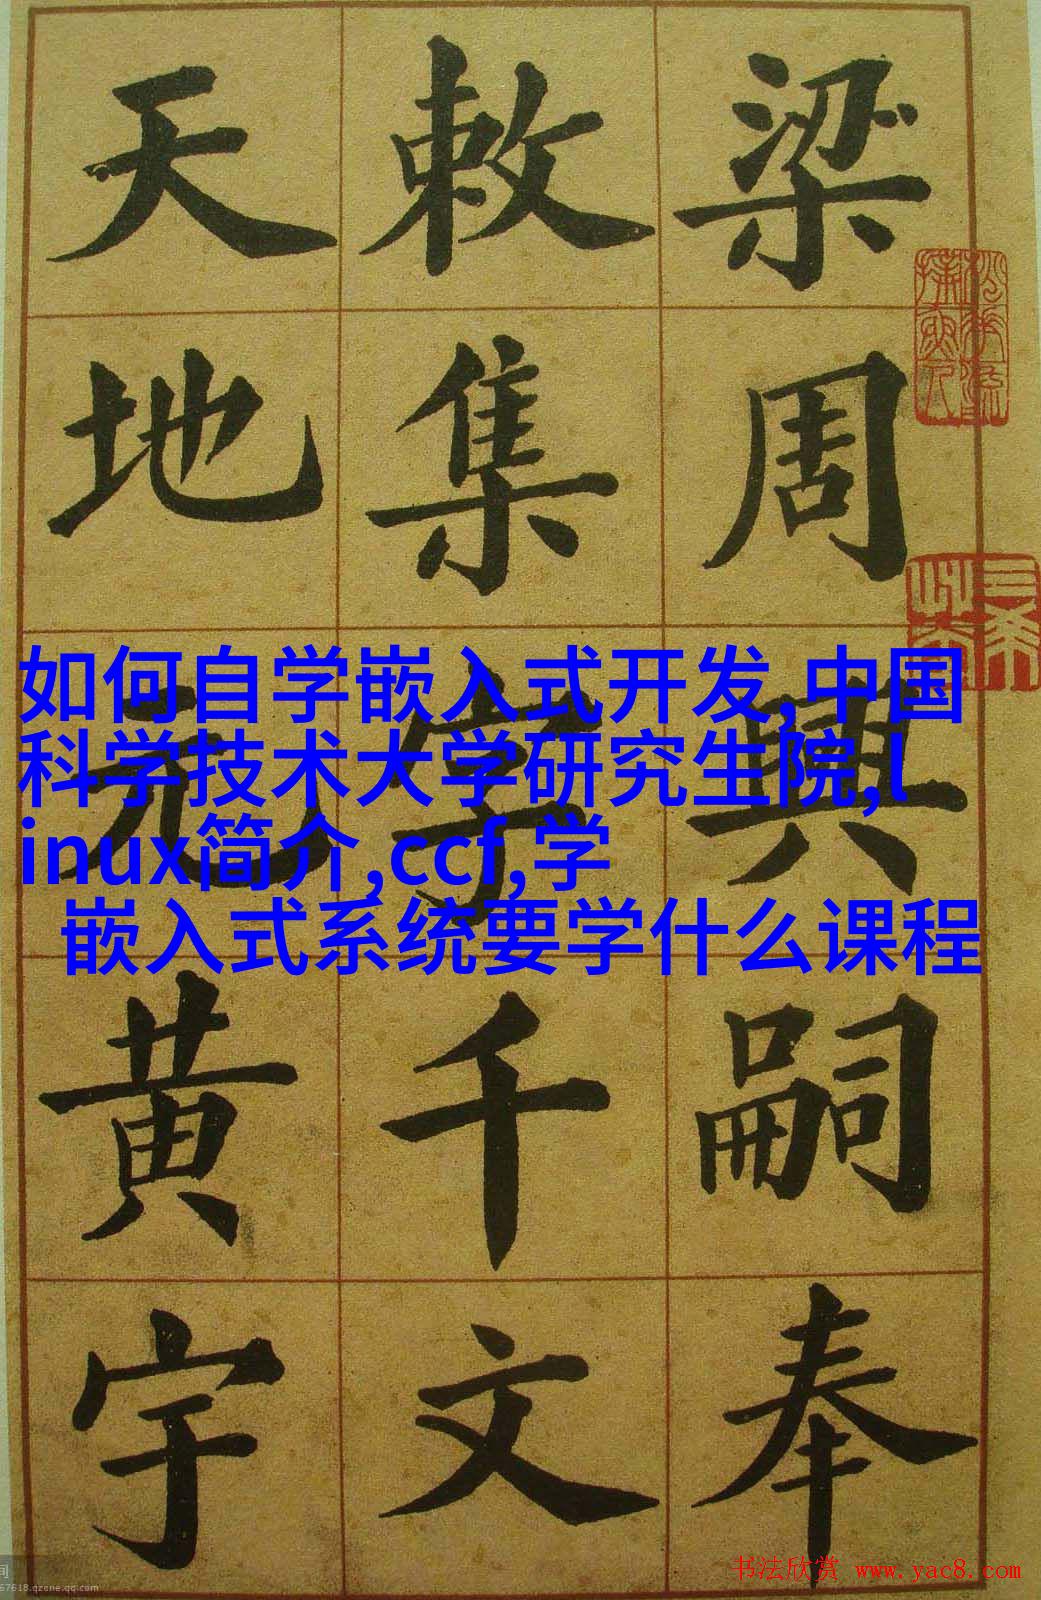 梁周興嗣奉
敕集字千文
天地元黄宇
如何自学嵌入式开发,中国
科学技术大学研究生院,l
inux简介,ccf,学
嵌入式系统要学什么课程
书法欣赏 www.yac8.com
间
67618.qzone.qq.com